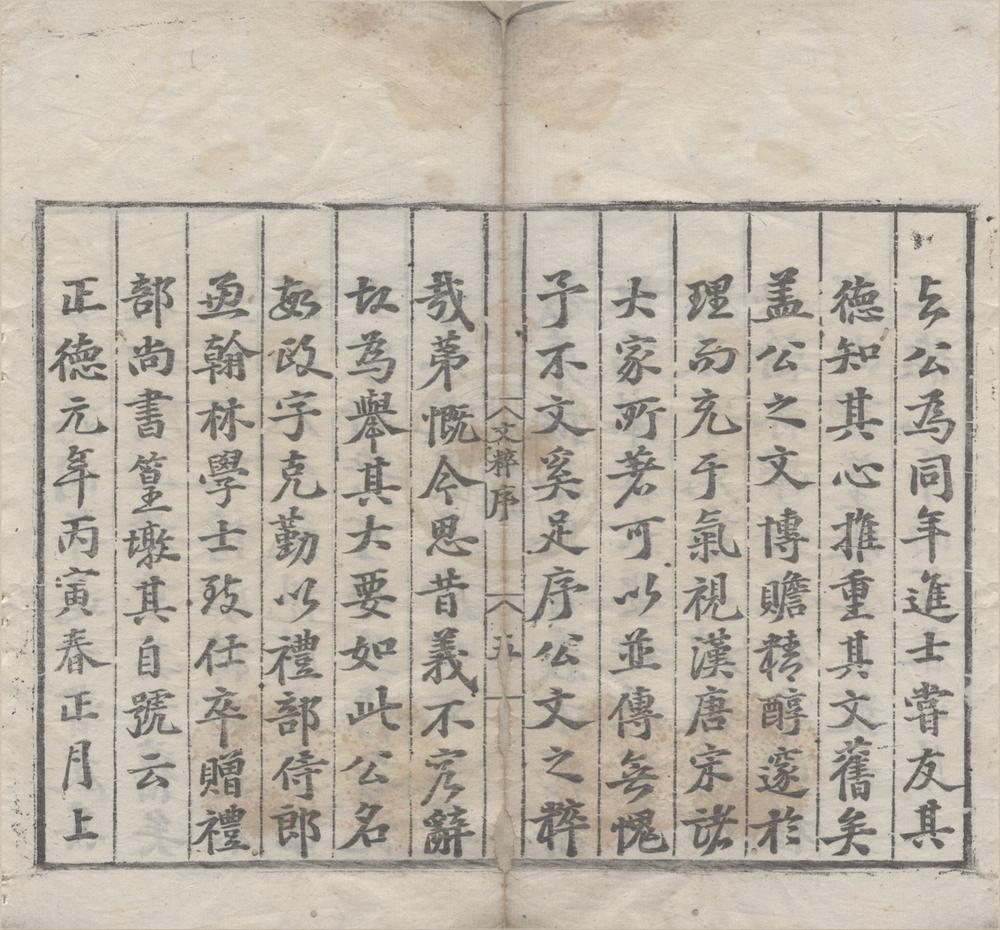 与公為同年進士嘗友其
德知其心推重其文舊矣
盖公之文博贍精醇邃於
理而充于氣視漢唐宋諸
大家所著可以並傳無愧
予不文奚足序公文之粹
文粹序
五
哉第慨今思昔義不容辭
故為舉其大要如此公名
敏政字克勤以禮部侍郎
兼翰林學士致仕卒贈禮
部尚書篁墩其自號云
正德元年丙寅春正月上